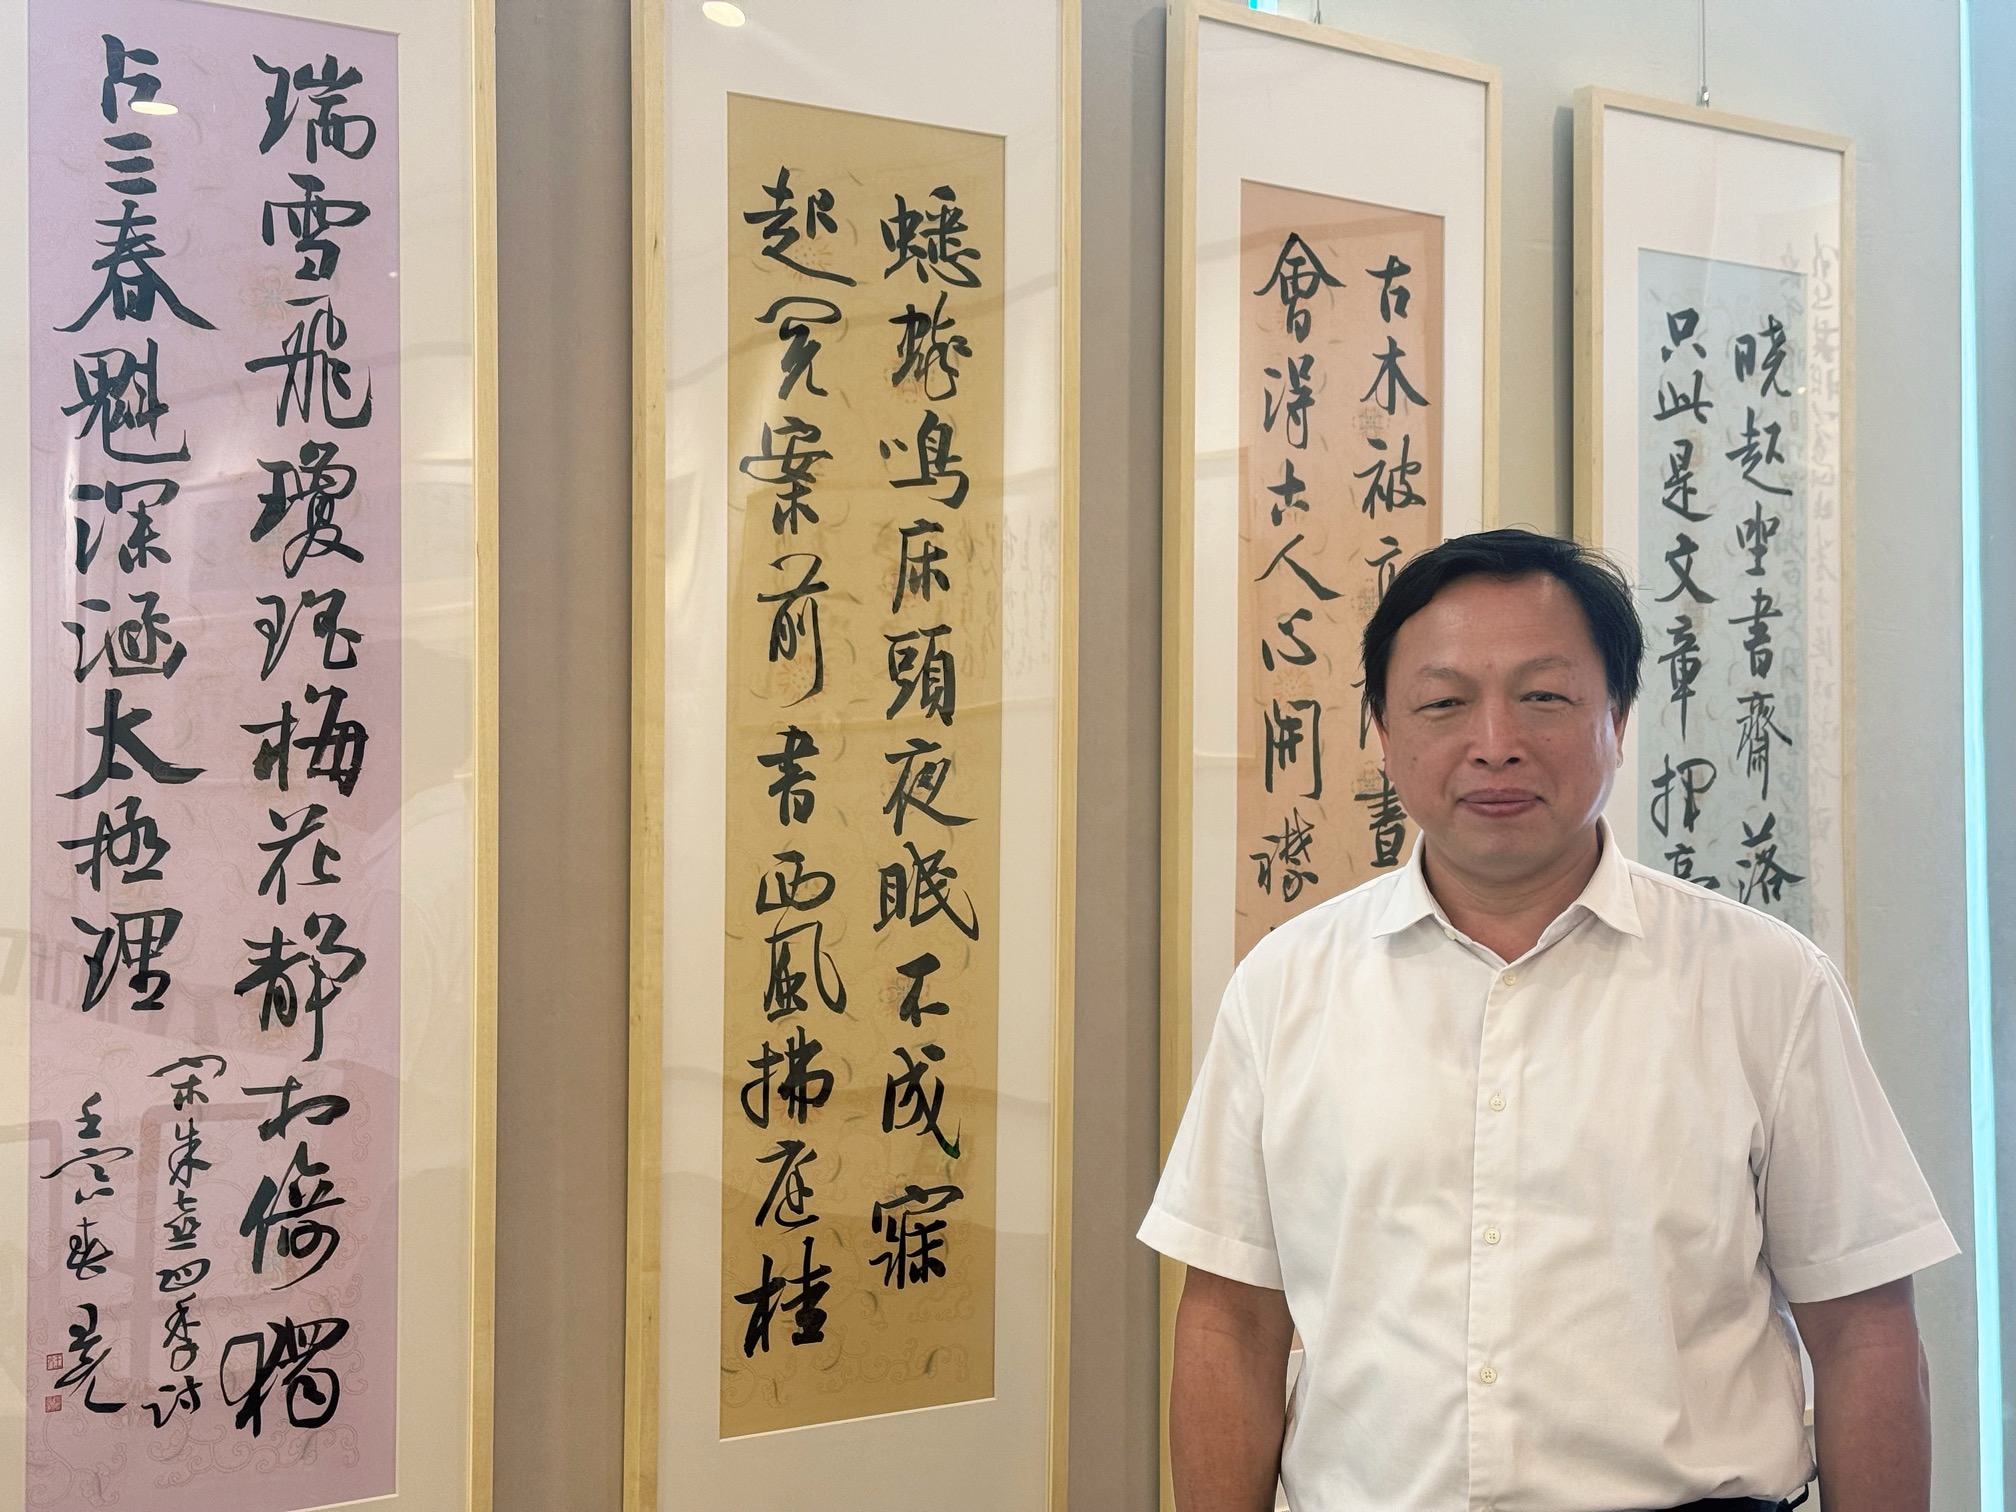 晓起坐書齋落
只此是文章揮
古木被
晝
會得古人心開襟
蟋蟀鳴床頭夜眠不成寐
起閲案前書西風拂庭桂
瑞雪飛瓊瑶梅花靜相倚獨
占三春魁深涵太極理
宋朱熹四季詩
壬寅春